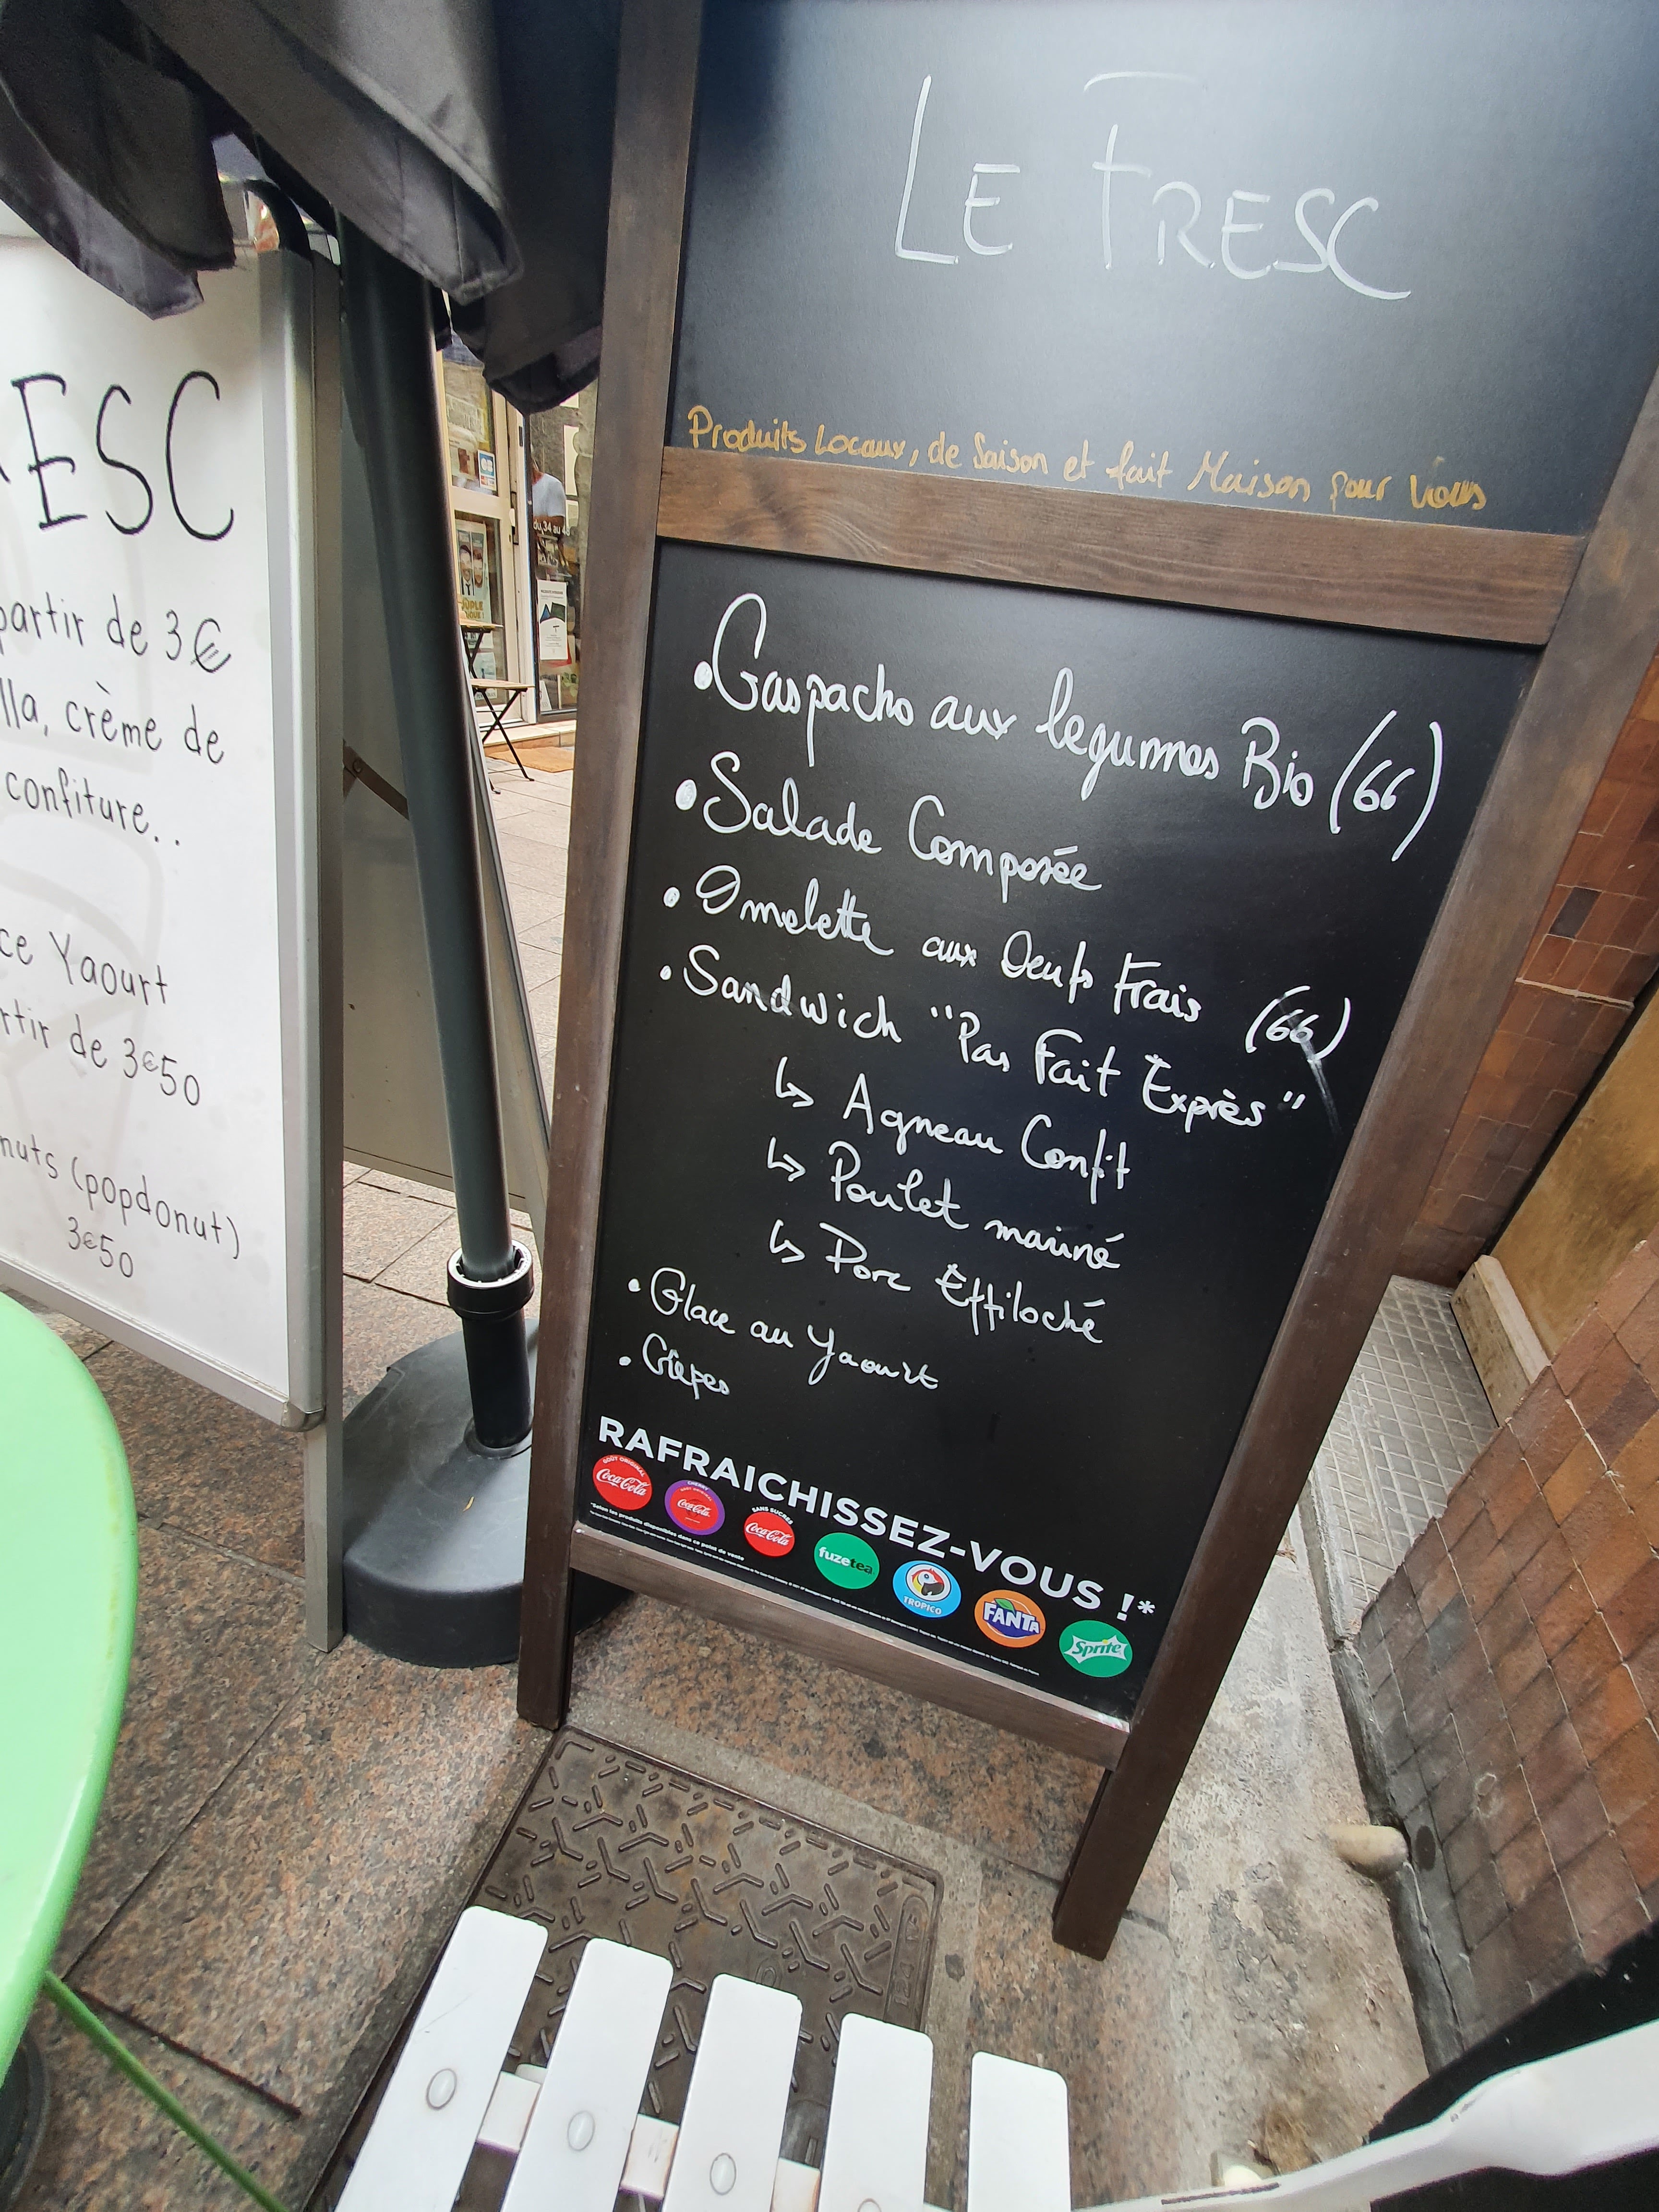 LE FRESC
Produits Locaux, de Saison et fait Maison pour Vous
• Gaspacho aux legumes Bio (66)
• Salade Composée
• Omelette aux Oeufs Frais (66)
• Sandwich "Pas Fait Exprès"
↳ Agneau Confit
↳ Poulet mariné
↳ Porc Effiloché
• Glace au Yaourt
• Crêpes
RAFRAICHISSEZ-VOUS !*
GOÛT ORIGINAL
Coca-Cola
CHERRY
Coca-Cola
SANS SUCRES
Coca-Cola
fuzetea
TROPICO
FANTA
Sprite
*Selon les produits disponibles dans ce point de vente
ESC
partir de 3€
lla, crème de
confiture..
ce Yaourt
rtir de 3€50
nuts (popdonut)
3€50
du 34 au